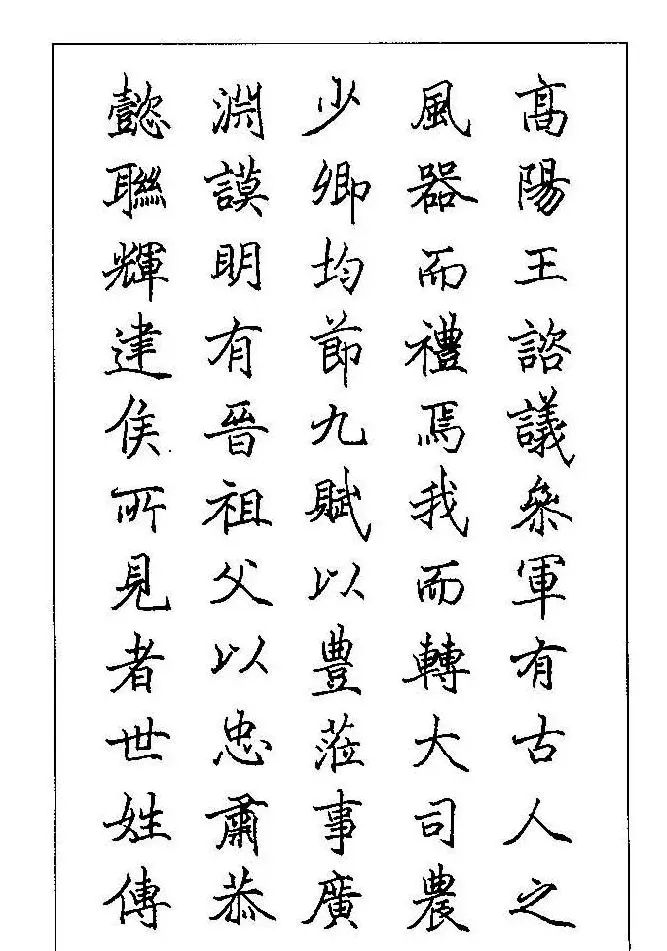 高陽王諮議叅軍有古人之
風器而禮焉我而轉大司農
少卿均節九賦以豊蒞事廣
淵謨明有晉祖父以忠肅恭
懿聯輝建侯所見者世姓傳